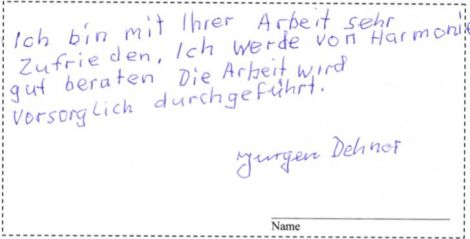 Ich bin mit Ihrer Arbeit sehr
Zufrieden, Ich werde von Harmonik
gut beraten Die Arbeit wird
vorsorglich durchgeführt.
Jurgen Dehner
Name